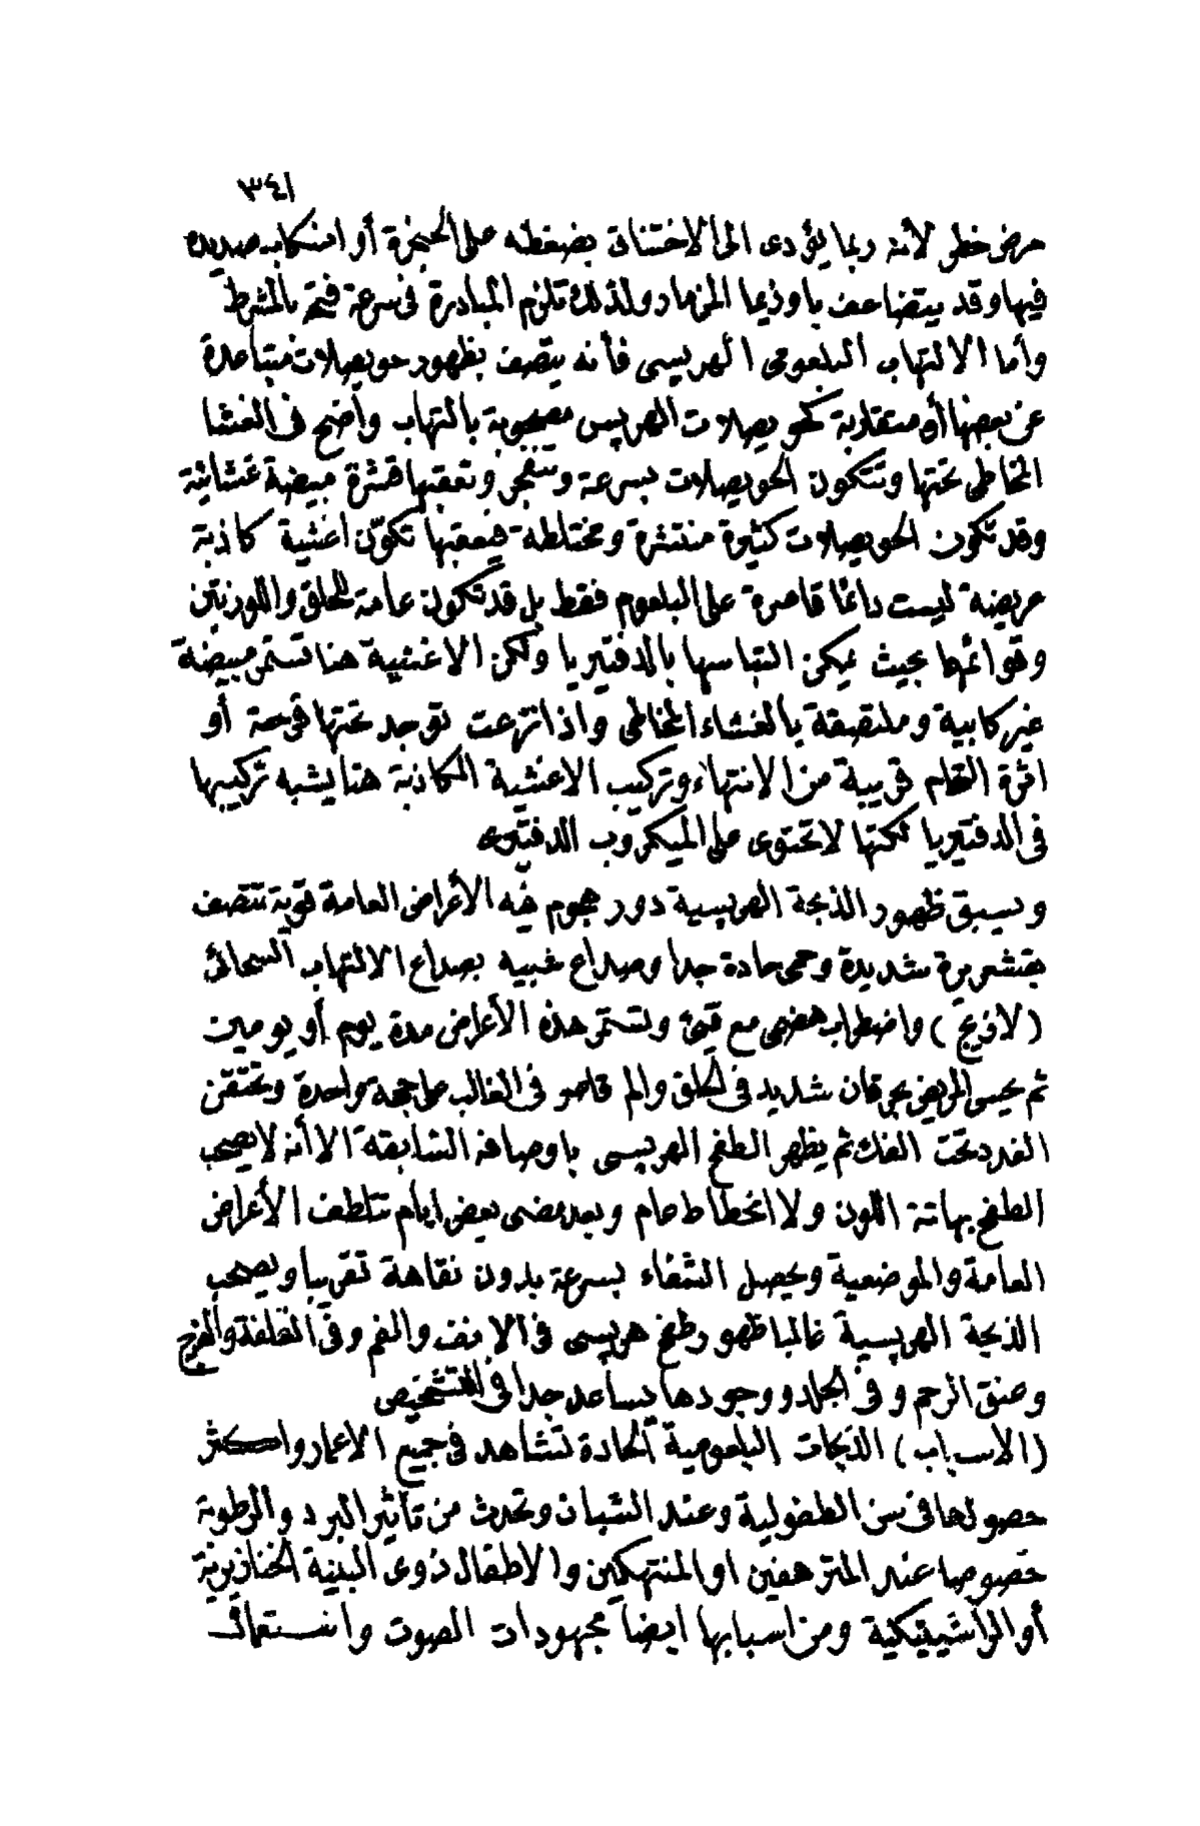 ٣٤١
مرض خطر لأنه ربما يؤدى الى الاختناق بضغطه على الحنجرة أو انسكاب صديده
فيها وقد يتضاعف باوذيما المزمار ولذلك تلزم المبادرة فى سرعة فتحه بالمشرط
وأما الالتهاب البلعومى الهربسى فأنه يتصف بظهور حويصلات متباعدة
عن بعضها أو متقاربة كحويصلات الهربس مصحوبة بالتهاب واضح فى الغشا
المخاطى تحتها وتتكون الحويصلات بسرعة وتنفجر وتعقبها قشرة مبيضة غشائية
وقد تكون الحويصلات كثيرة منتشرة ومختلطة فيعقبها تكوّن اغشية كاذبة
عريضة ليست دائما قاصرة على البلعوم فقط بل قد تكون عامة للحلق واللوزتين
وقوائمها بحيث يمكن التباسها بالدفتيريا ولكن الاغشية هنا تستمر مبيضة
غير كابية وملتصقة بالغشاء المخاطى واذا نزعت توجد تحتها قرحة أو
اثرة التحام قريبة من الانتهاء وتركيب الاغشية الكاذبة هنا يشبه تركيبها
فى الدفتيريا لكنها لا تحتوى على الميكروب الدفتيرى
ويسبق ظهور الذبحة الهربسية دور هجوم فيه الأعراض العامة قوية تتصف
بقشعريرة شديدة وحمى حادة جدا وصداع شبيه بصداع الالتهاب السحائى
(لازيج) واضطراب هضمى مع قيئ وتستمر هذه الأعراض مدة يوم أو يومين
ثم يحس المريض بحرقان شديد فى الحلق والم قاصر فى الغالب على جهة واحدة وتحتقن
الغدد تحت الفك ثم يظهر الطفح الهربسى باوصافه السابقة الا أنه لا يصحب
الطفح بهاتة اللون ولا انحطاط عام وبعد مضى بعض ايام تتلطف الأعراض
العامة والموضعية ويحصل الشفاء بسرعة بدون نقاهة تقريبا ويصحب
الذبحة الهربسية غالبا ظهور طفح هربسى فى الانف والفم وفى القلفة والفرج
وعنق الرحم وفى الجلد ووجودها يساعد جدا فى التشخيص
(الاسباب) الذبحات البلعومية الحادة تشاهد فى جميع الاعمار واكثر
حصولها فى سن الطفولية وعند الشبان وتحدث من تأثير البرد والرطوبة
خصوصا عند المترهفين او المنتهكين والاطفال ذوى البنية الخنازيرية
أو الراشيتيكية ومن اسبابها ايضا مجهودات الصوت واستعمال